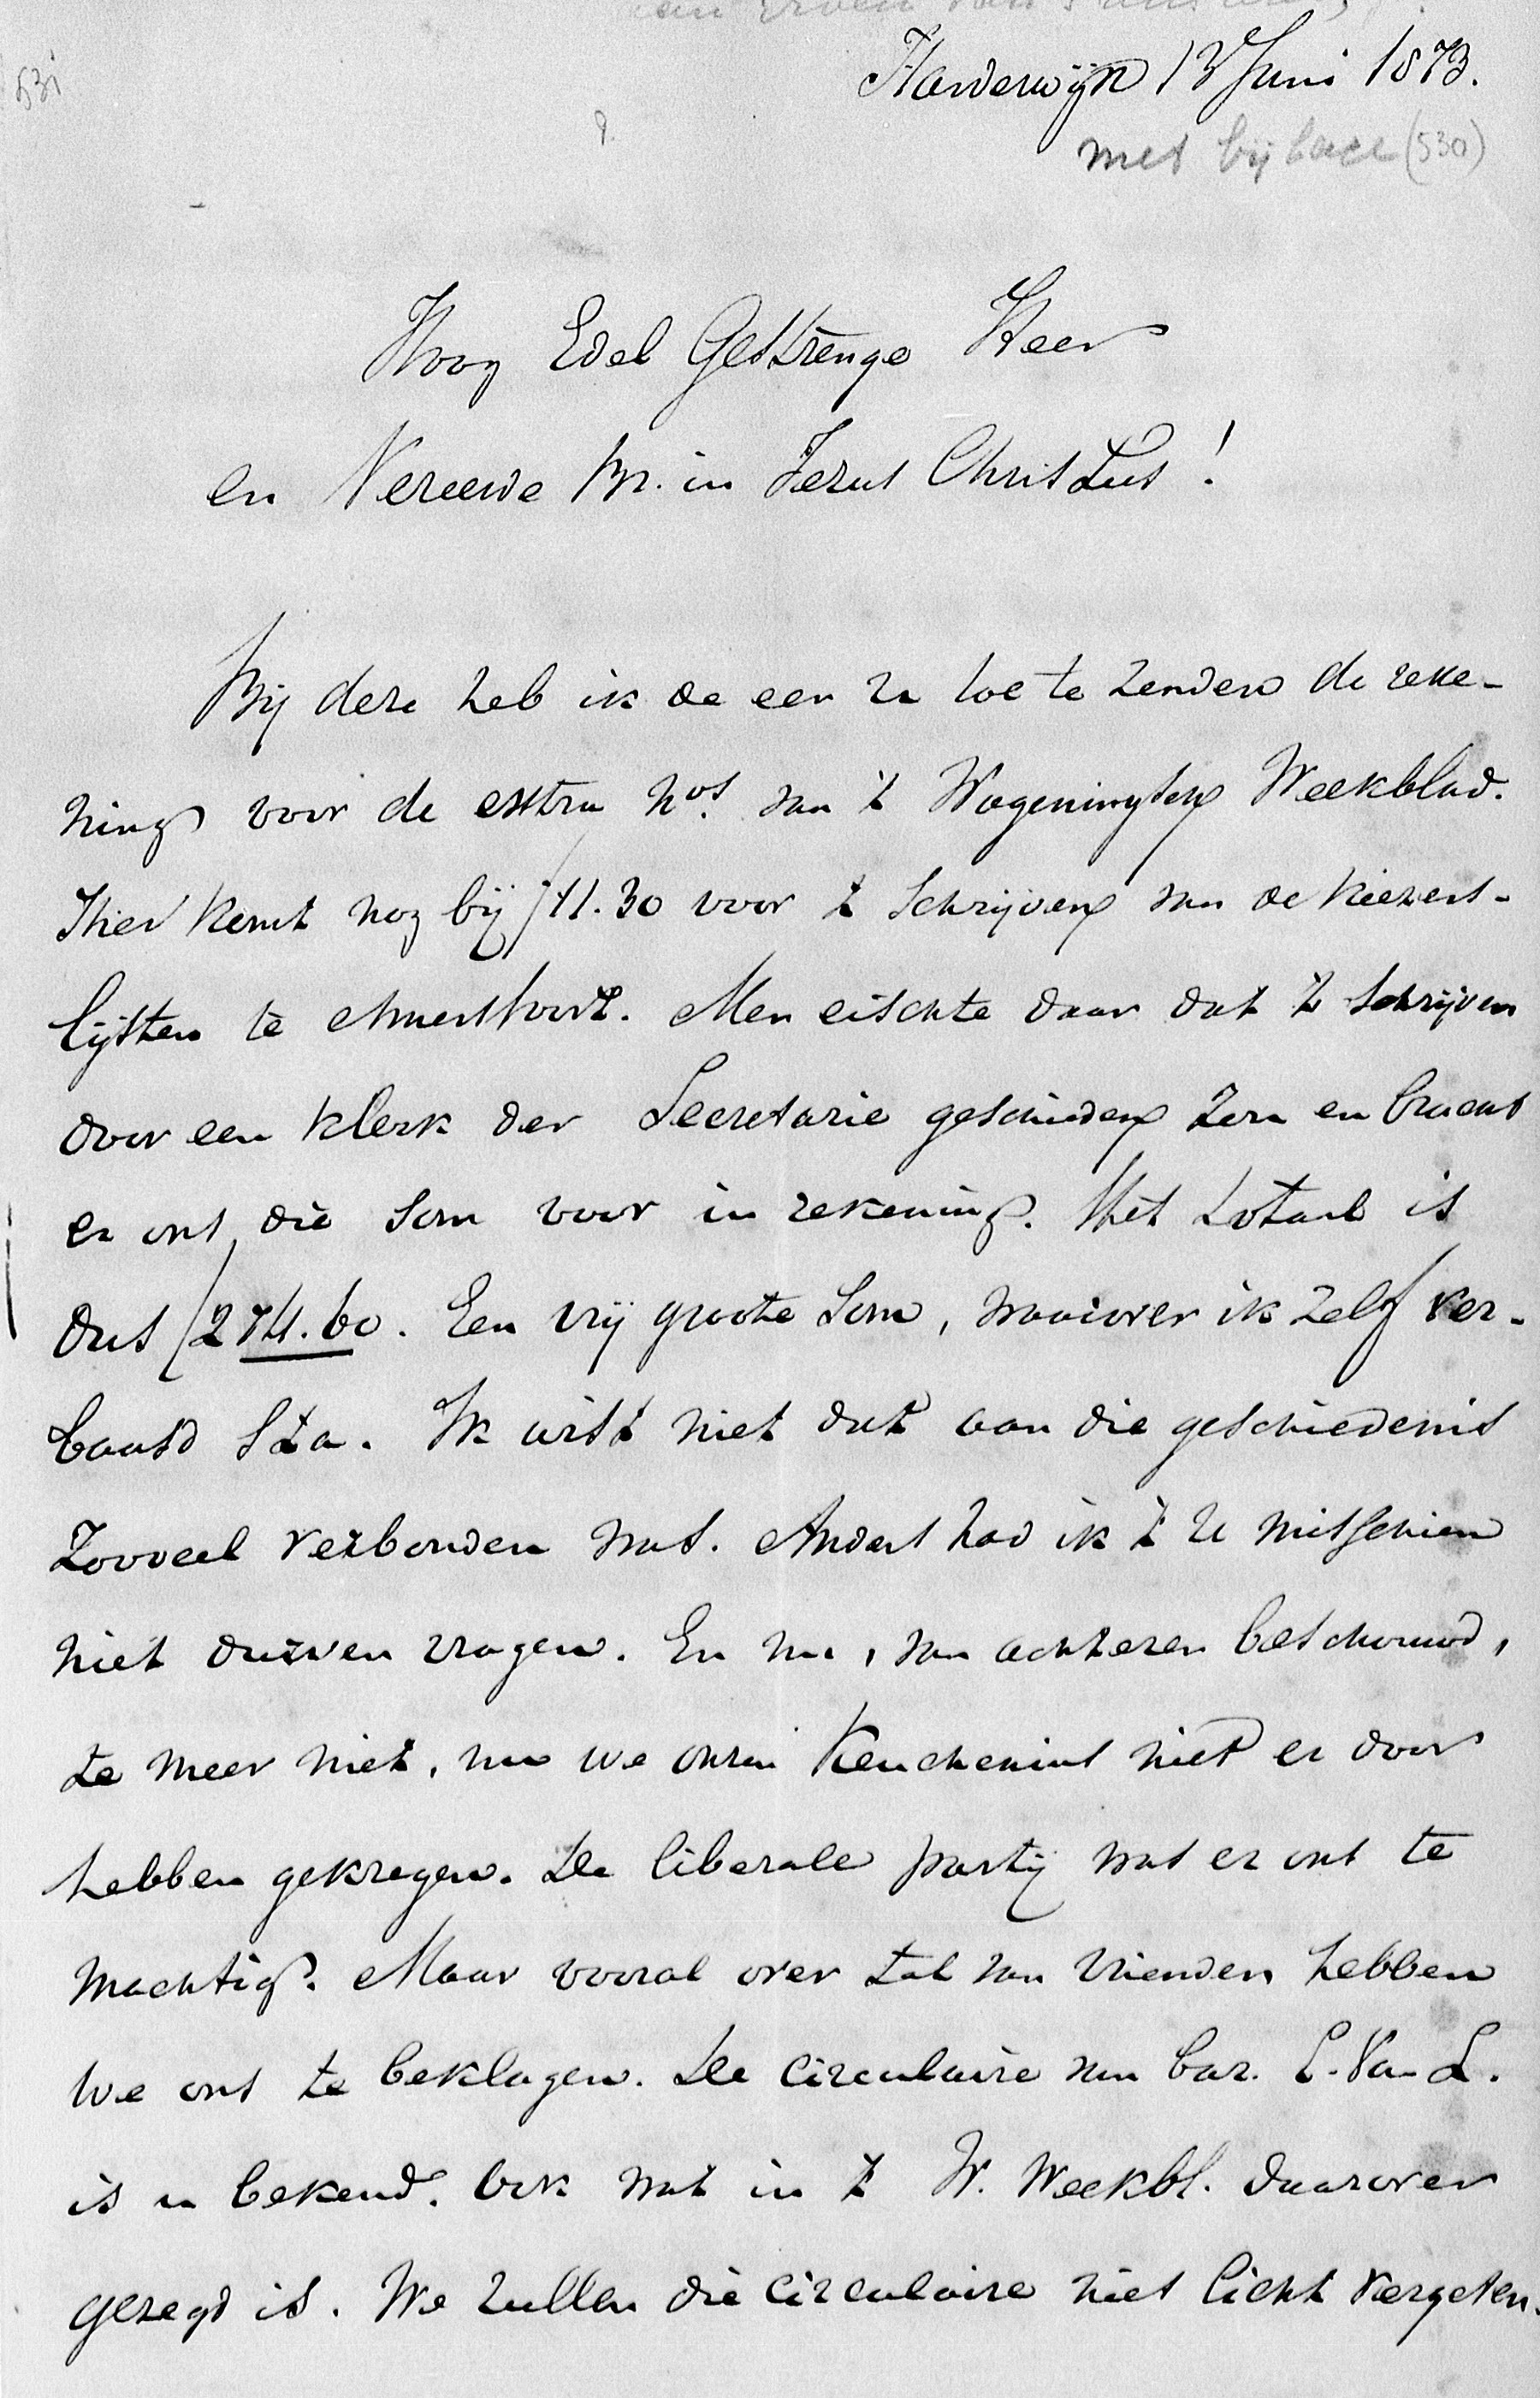 531
Harderwijk 13 Juni 1873.
met bijlage (530)
Hoog Edel Gestrenge Heer
en Vereerde Br. in Jezus Christus!
Bij deze heb ik de eer U toe te zenden de reke-
ning voor de extra nos. van 't Wageningsch Weekblad.
Hier komt nog bij f 11.30 voor 't schrijven van de kiezers-
lijsten te Amersfoort. Men eischte daar dat 't schrijven
door een klerk der Secretarie geschieden zou en bracht
er ons die som voor in rekening. Het totaal is
dus f 274.60. Een vrij groote som, waarover ik zelf ver-
baasd sta. Ik wist niet dat aan die geschiedenis
zooveel verbonden was. Anders had ik 't U misschien
niet durven vragen. En nu, van achteren beschouwd,
te meer niet, nu we onzen Keuchenius niet er door
hebben gekregen. De liberale partij was er ons te
machtig. Maar vooral over tal van vrienden hebben
we ons te beklagen. De circulaire van bar. L. Van L.
is u bekend. Ook wat in 't W. Weekbl. daarover
gezegd is. We zullen die circulaire niet licht vergeten.